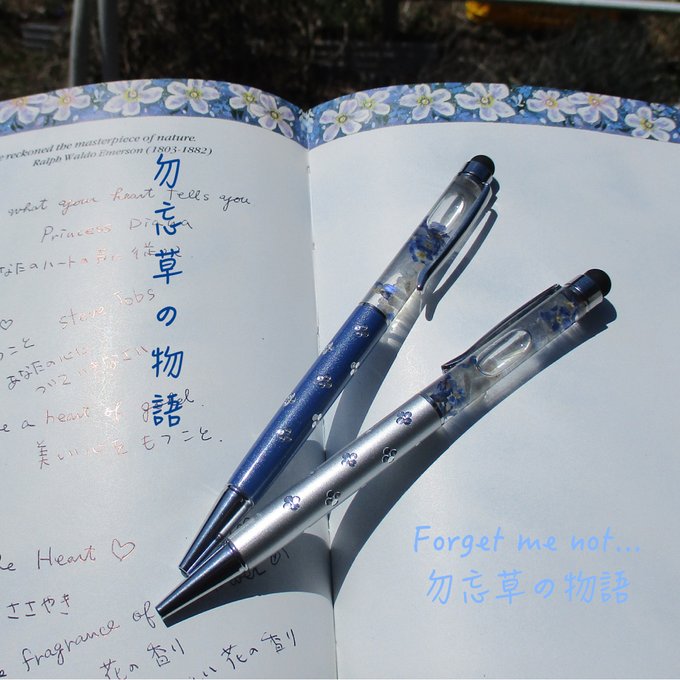 e reckoned the masterpiece of nature.
Ralph Waldo Emerson (1803-1882)
勿忘草の物語
what your heart tells you
Princess Diana
なたのハートの声に従
♡ Steve Jobs
こと
あなたの心に
a heart of
美しい心をもつこと.
e Heart ♡
ささやき
e fragrance of
花の香り
い花の香り
Forget me not...
勿忘草の物語